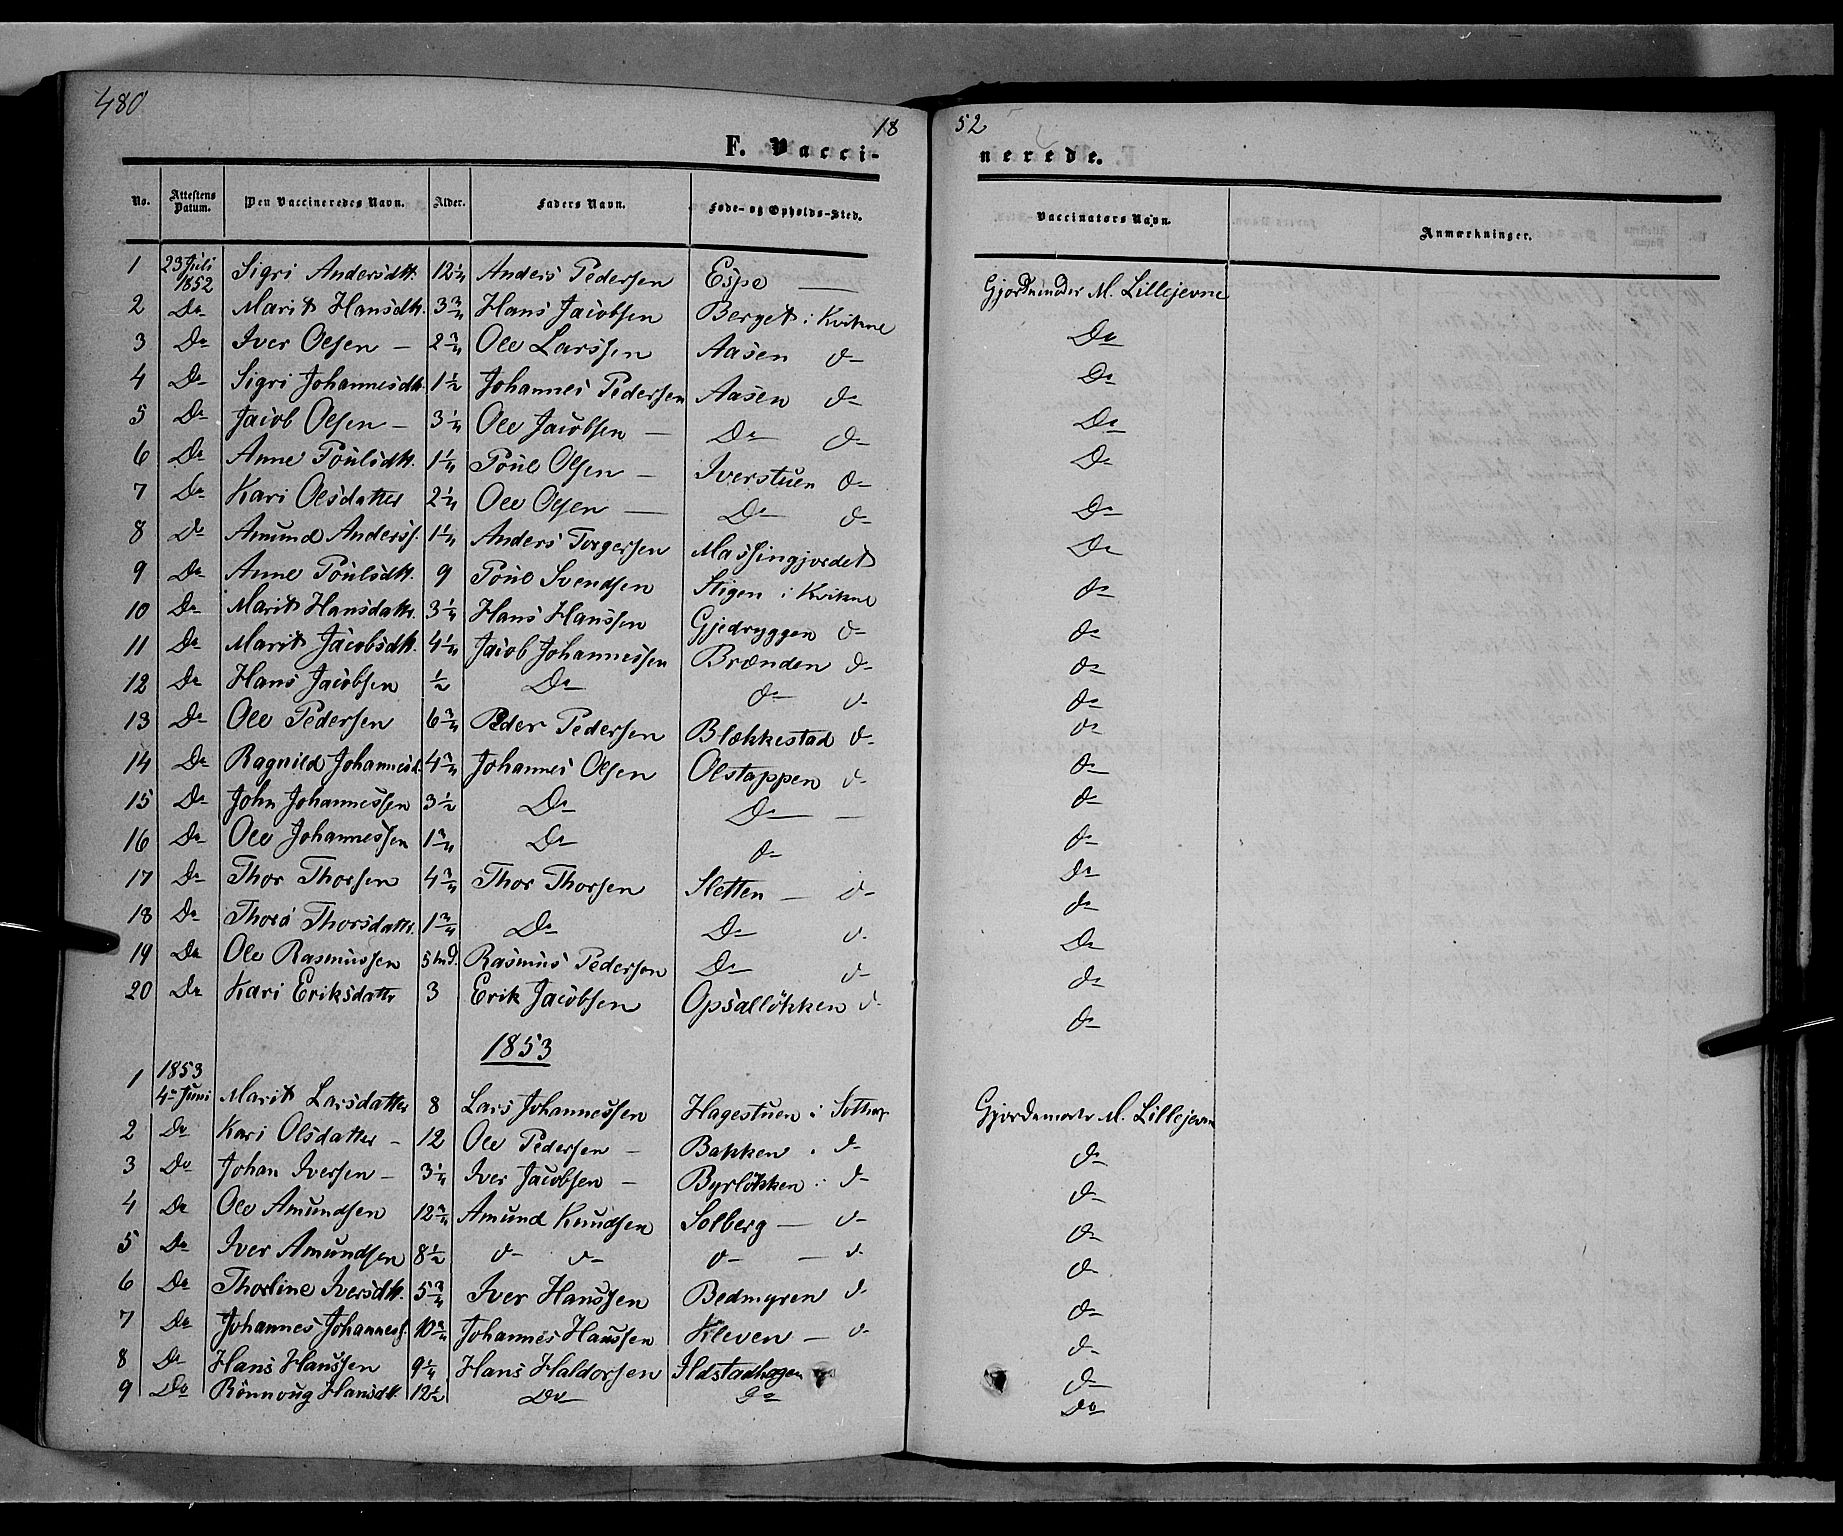 480
18 52
F. Vaccinerede.
No. Attestens Datum. Den Vaccineredes Navn. Alder. Faders Navn. Føde- og Opholds-Sted. Vaccinators Navn. Anmærkninger.
1 23 Juli 1852 Sigri Andersdtt. 12 1/4 Anders Pedersen Espe — M. Lillejevne
2 Do Marit Hansdtt. 3 3/4 Hans Jacobsen Berget i Kvikne Do
3 Do Iver Olsen — 2 3/4 Ole Larssen Aasen do Do
4 Do Sigri Johannesdtt. 1 1/2 Johannes Pedersen Aasen do Do
5 Do Jacob Olsen — 3 1/4 Ole Jacobsen — Do do Do
6 Do Anne Poulsdtt. 1 1/4 Poul Olsen — Iverstuen do Do
7 Do Kari Olsdatter 2 1/4 Ole Olsen — Do do Do
8 do Amund Anderss. 1 1/4 Anders Torgersen do
9 Do Anne Poulsdtt. 9 Poul Svendsen Stigen i Kvikne do
10 Do Marit Hansdatt. 3 1/4 Hans Hanssen Gjedryggen do do
11 Do Marit Jacobsdtt. 4 1/4 Jacob Johannessen Brænden do do
12 Do Hans Jacobsen 1/2 Do do do do
13 Do Ole Pedersen 6 3/4 Peder Pedersen Blækkestad do do
14 Do Ragnild Johannesd. 4 3/4 Johannes Olsen Olstappen do do
15 Do John Johannessen 3 1/2 Do Do — do
16 Do Ole Johannessen 1 3/4 Do do do
17 Do Thor Thorsen 4 3/4 Thor Thorsen Sletten — do do
18 Do Thore Thorsdatt. 1 3/4 Do Do do Do
19 Do Ole Rasmussen 5 Md. Rasmus Pedersen Do do do
20 Do Kari Eriksdatter 3 Erik Jacobsen Opsalløkken do do
1853
1 1853 4de Juni Marit Larsdatter 8 Lars Johannessen Hagestuen i Sothorp M. Lillejevne
2 Do Kari Olsdatter — 12 Ole Pedersen — Bakken do do
3 Do Johan Iversen — 3 1/4 Iver Jacobsen — Byrløkken do do
4 Do Ole Amundsen 12 3/4 Amund Knudsen Solberg — do do
5 Do Iver Amundsen 8 1/2 do do do — do do
6 Do Thorline Iversdtt. 5 3/4 Iver Hanssen Bedmyren do do
7 Do Johannes Johanness. 10 3/4 Johannes Hanssen Kleven — do do
8 Do Hans Hanssen 9 1/4 Hans Haldorsen Ildstadhagen do
9 Do Rönnoug Hansdtt. 12 1/2 Do Do Do